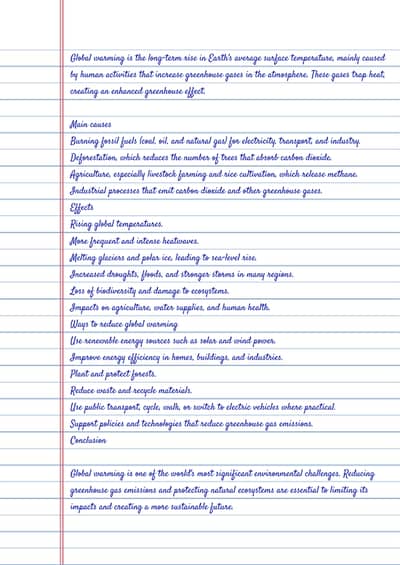 Global warming is the long-term rise in Earth's average surface temperature, mainly caused
by human activities that increase greenhouse gases in the atmosphere. These gases trap heat,
creating an enhanced greenhouse effect.
Main causes
Burning fossil fuels (coal, oil, and natural gas) for electricity, transport, and industry.
Deforestation, which reduces the number of trees that absorb carbon dioxide.
Agriculture, especially livestock farming and rice cultivation, which release methane.
Industrial processes that emit carbon dioxide and other greenhouse gases.
Effects
Rising global temperatures.
More frequent and intense heatwaves.
Melting glaciers and polar ice, leading to sea-level rise.
Increased droughts, floods, and stronger storms in many regions.
Loss of biodiversity and damage to ecosystems.
Impacts on agriculture, water supplies, and human health.
Ways to reduce global warming
Use renewable energy sources such as solar and wind power.
Improve energy efficiency in homes, buildings, and industries.
Plant and protect forests.
Reduce waste and recycle materials.
Use public transport, cycle, walk, or switch to electric vehicles where practical.
Support policies and technologies that reduce greenhouse gas emissions.
Conclusion
Global warming is one of the world's most significant environmental challenges. Reducing
greenhouse gas emissions and protecting natural ecosystems are essential to limiting its
impacts and creating a more sustainable future.